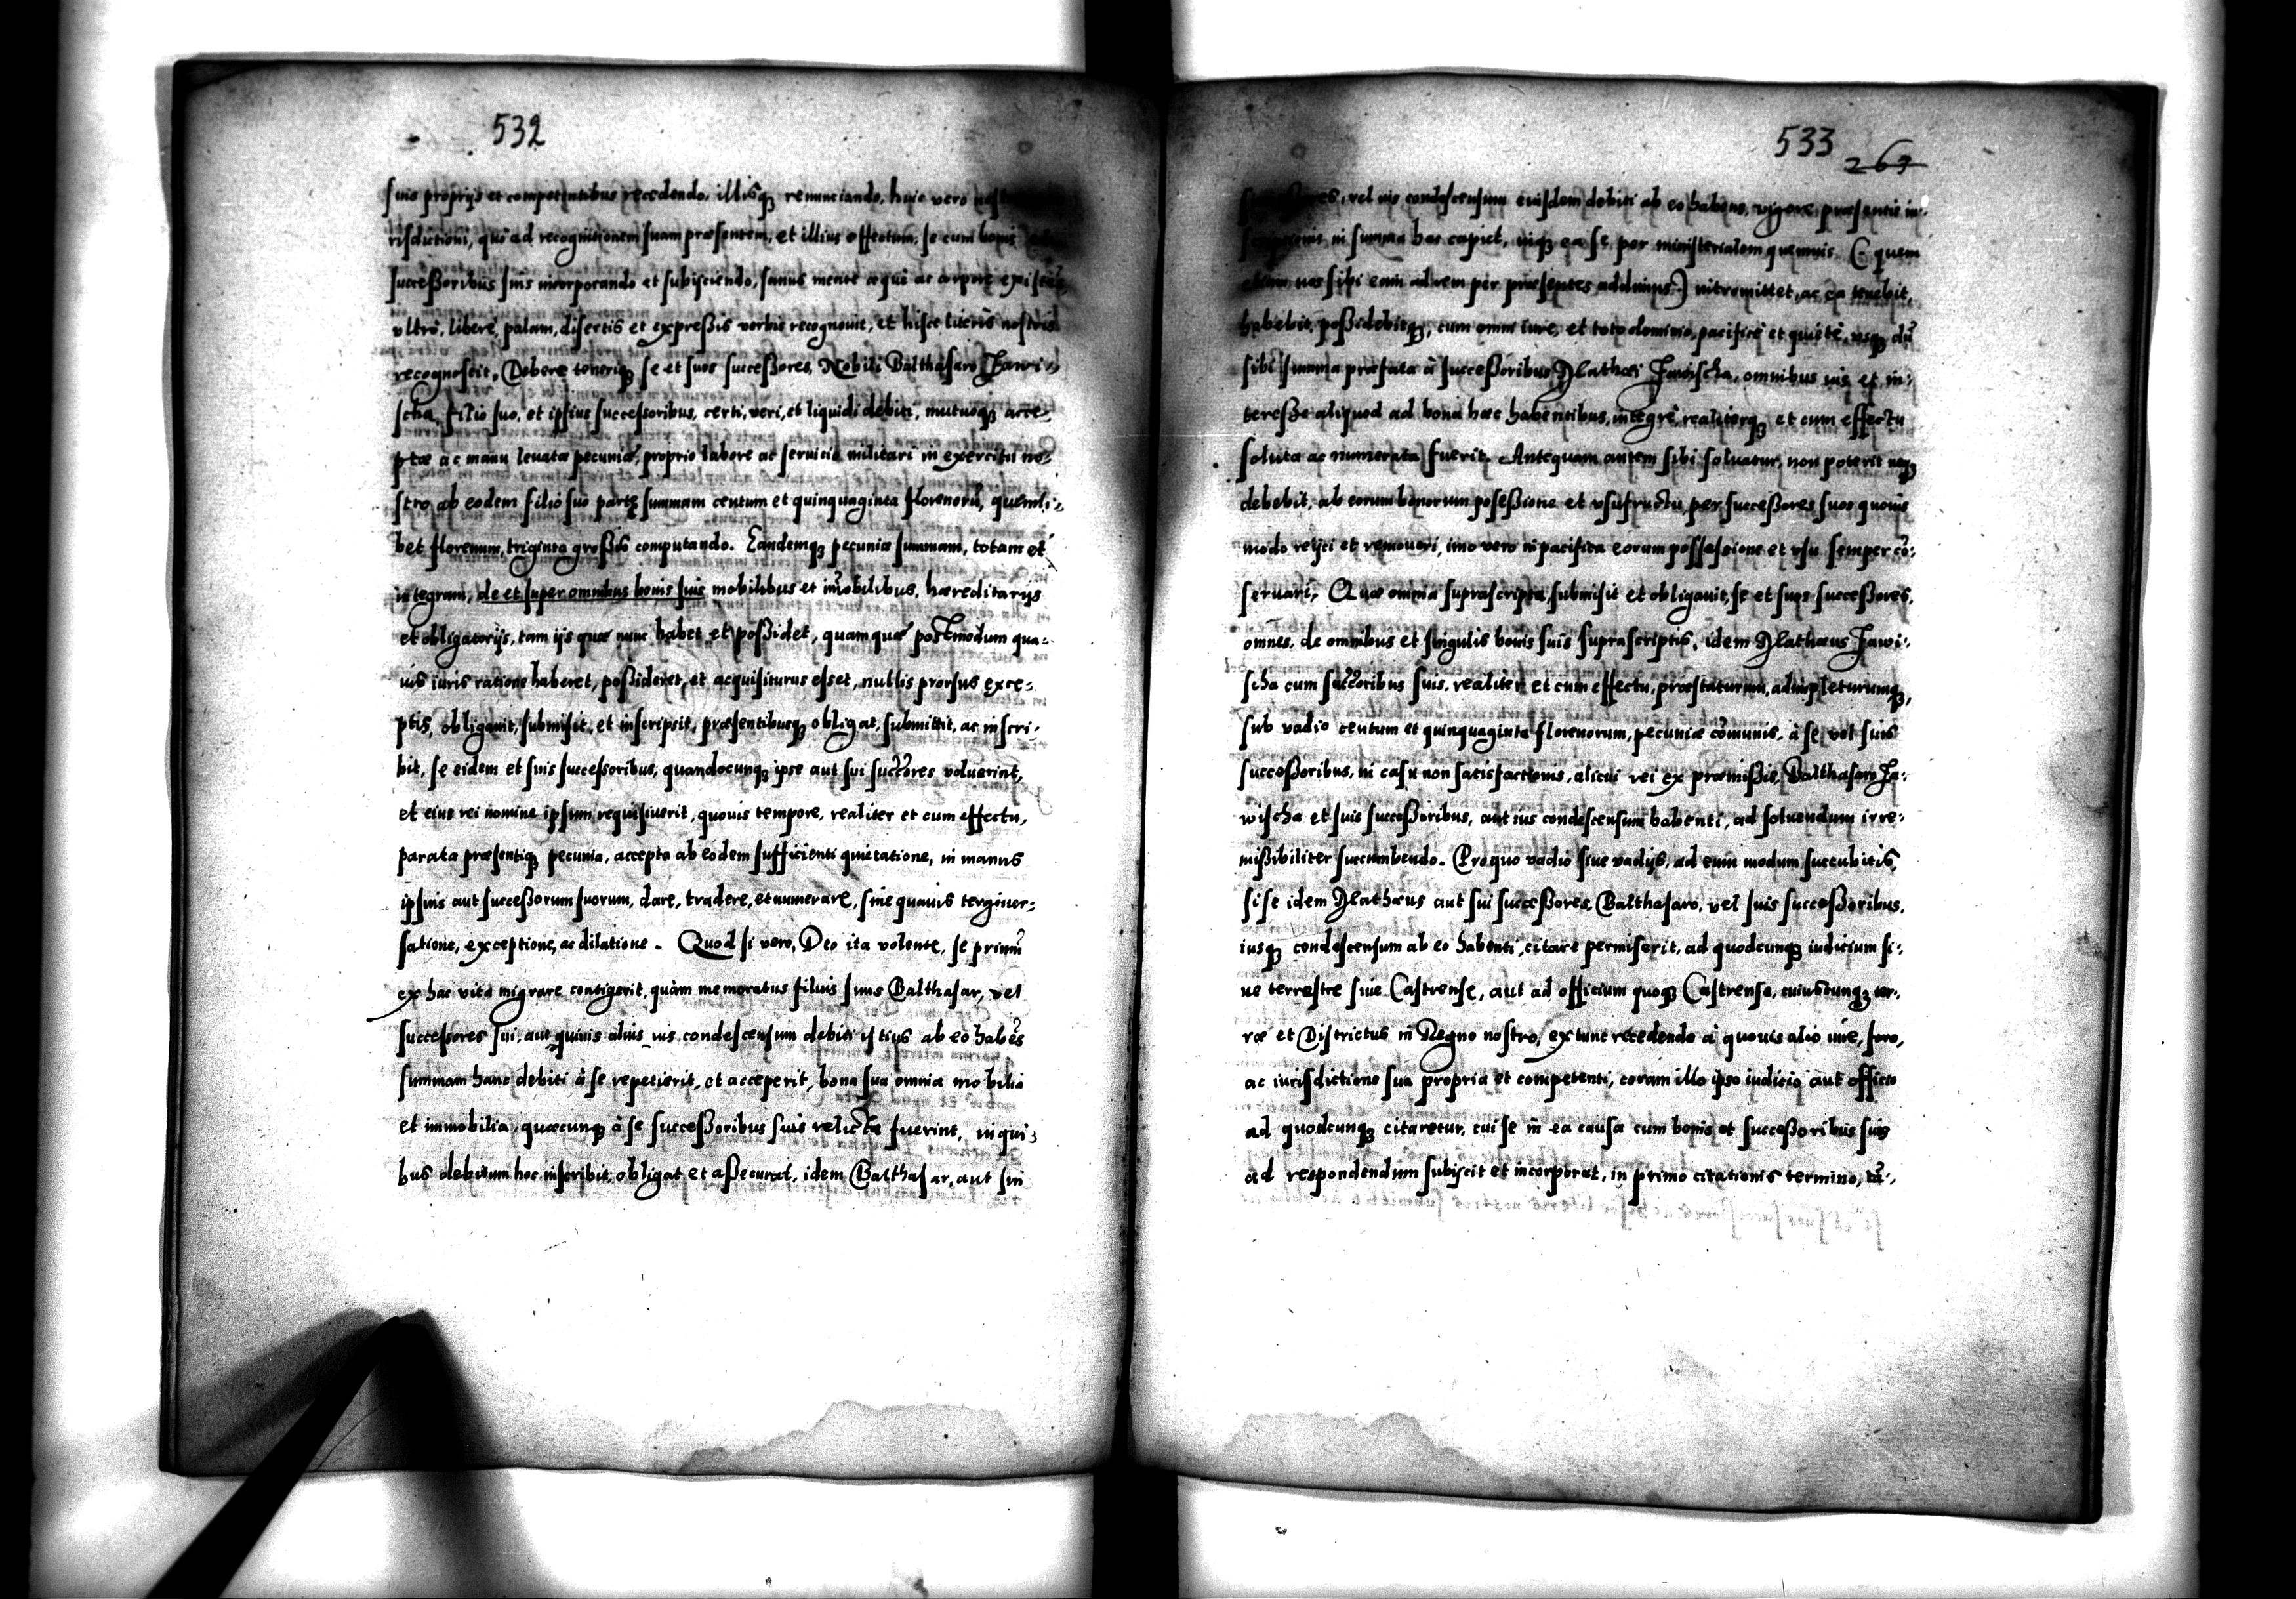 532
suis proprijs et competentibus recedendo, illisq renunciando, huic vero
risdictioni, quo ad recognitionem suam præsentem, et illius effectum, se cum bonis
successoribus suis incorporando et subijciendo, sanus mente æque ac corpore existens,
vltro, libere, palam, disertis et expressis verbis recognouit, et hisce literis nostris
recognoscit, Debere teneriq se et suos successores, Nobili Balthasaro Jawi-
scha, filio suo, et ipsius successoribus, certi, veri, et liquidi debiti, mutuoq acce-
ptæ ac manu leuatæ pecuniæ, proprio labore ac seruicio militari in exercitu no-
stro ab eodem filio suo partæ summam centum et quinquaginta florenorū, quemli-
bet florenum, triginta grossis computando. Eandemq pecuniæ summam, totam et
integram, de et super omnibus bonis suis mobilibus et im̄obilibus, hæreditarijs
et obligatorijs, tam ijs quæ nunc habet et possidet, quam quæ postmodum qua-
uis iuris ratione haberet, possideret, et acquisiturus esset, nullis prorsus exce-
ptis, obligauit, submisit, et inscripsit, præsentibusq obligat, submittit, ac inscri-
bit, se eidem et suis successoribus, quandocunq ipse aut sui succ̄ores voluerint,
et eius rei nomine ipsum requisiuerit, quouis tempore, realiter et cum effectu,
parata præsentiq pecunia, accepta ab eodem sufficienti quietatione, in manus
ipsius aut successorum suorum, dare, tradere, et numerare, sine quauis tergiuer-
satione, exceptione, ac dilatione. Quod si vero, Deo ita volente, se primū
ex hac vita migrare contigerit, quàm memoratus filius suus Balthasar, vel
successores sui, aut quiuis alius ius condescensum debiti istius ab eo habēs
summam hanc debiti à se repetierit, et acceperit, bona sua omnia mobilia
et immobilia, quæcunq à se successoribus suis relicta fuerint, in qui-
bus debitum hoc inscribit, obligat et assecurat, idem Balthasar, aut sui
533 263
vel ius condescensum eiusdem debiti ab eo habens, vigore præsentis in-
in summa hac capiet, inq ea se per ministerialem quemuis (: quem
etiam nos sibi eam ad rem per præsentes addimus :) intromittet, ac ea tenebit,
habebit, possidebitq, cum omni iure, et toto dominio, pacificè et quietè, usq dū
sibi summa præfata à successoribus Mathæi Jawischa, omnibus ius et in-
teresse aliquod ad bona hæc habentibus, integrè, realiterq et cum effectu
soluta ac numerata fuerit. Antequam autem sibi soluatur, non poterit neq
debebit, ab eorum bonorum posessione et vsufructu, per successores suos quouis
modo reijci et remoueri, imo vero in pacifica eorum possessione et vsu semper cō-
seruari. Quæ omnia suprascripta, submisit et obligauit, se et suos successores,
omnes, de omnibus et singulis bonis suis suprascriptis, idem Mathæus Jawi-
scha cum succ̄oribus suis, realiter et cum effectu, præstaturum, adimpleturumq,
sub vadio centum et quinquaginta florenorum, pecuniæ com̄unis, à se, vel suis
successoribus, in casu non satisfactionis, alicui rei ex præmissis, Balthasaro Ja-
wischa et suis successoribus, aut ius condescensum habenti, ad soluendum irre-
missibiliter succumbendo. Pro quo vadio siue vadijs, ad eum modum succubitis,
si se idem Mathæus aut sui successores, Balthasaro, vel suis successoribus,
iusq condescensum ab eo habenti, citare permiserit, ad quodcunq iudicium si-
ue terrestre siue Castrense, aut ad officium quoq Castrense, cuiuscunq ter-
ræ et Districtus in Regno nostro, ex tunc recedendo à quouis alio iure, foro,
ac iurisdictione sua propria et competenti, coram illo ipso iudicio aut officio
ad quodcunq citaretur, cui se in ea causa cum bonis et successoribus suis
ad respondendum subijcit et incorporat, in primo citationis termino,